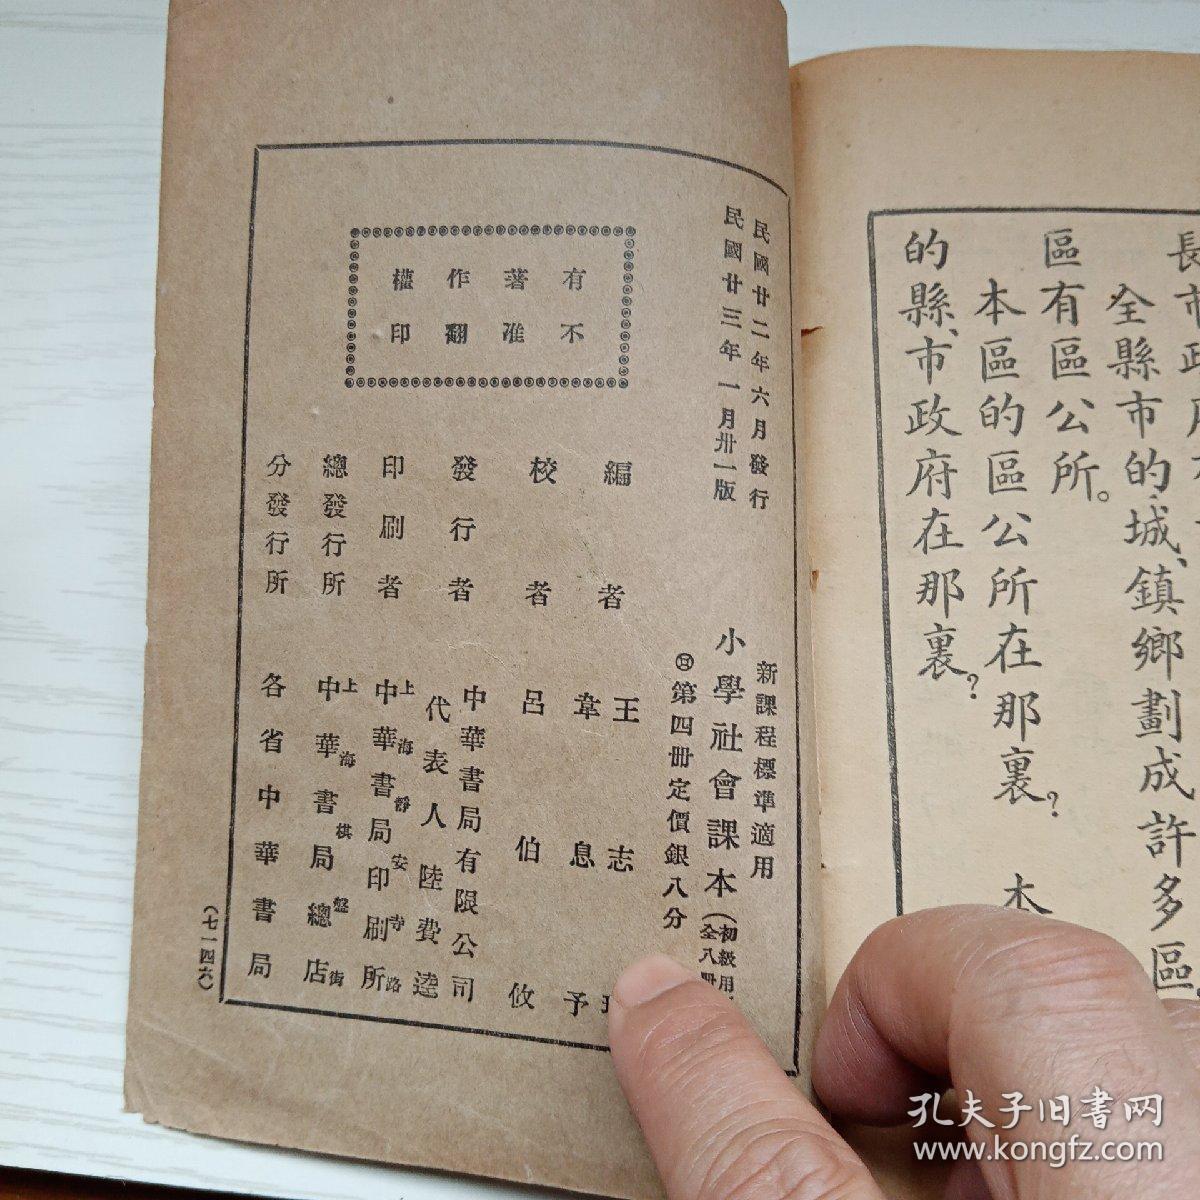 長市政府
全縣市的城、鎮鄉劃成許多區
區有區公所。
本區的區公所在那裏？本
的縣、市政府在那裏？
民國廿二年六月發行
民國廿三年一月卅一版
新課程標準適用
小學社會課本（初級用
全八冊
第四冊定價銀八分
有著作權
不准翻印
編者 王志
韋息予
校者 呂伯攸
發行者 中華書局有限公司
代表人 陸費逵
印刷者 上海靜安寺路
中華書局印刷所
總發行所 上海棋盤街
中華書局總店
分發行所 各省中華書局
（七一四六）
孔夫子旧书网
www.kongfz.com